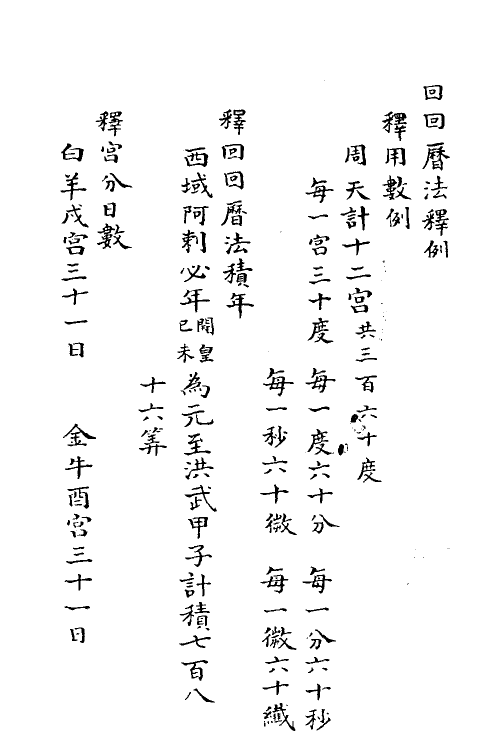 回回曆法釋例
釋用數例
周天計十二宮共三百六十度
每一宮三十度　每一度六十分　每一分六十秒
每一秒六十微　每一微六十纖
釋回回曆法積年
西域阿剌必年開皇己未為元至洪武甲子計積七百八
十六筭
釋宮分日數
白羊戌宮三十一日　金牛酉宮三十一日